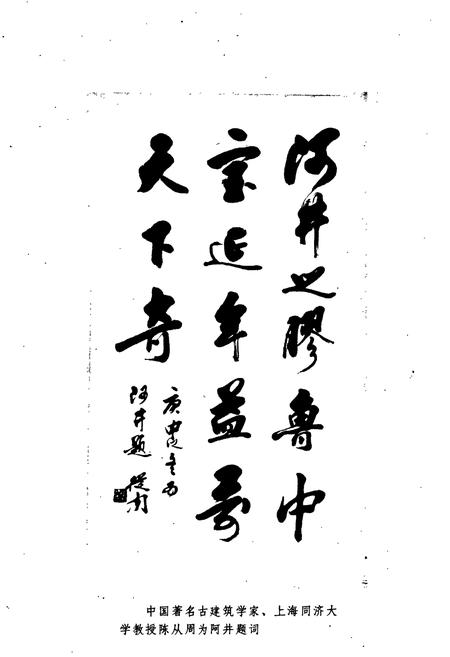 阿井之膠魯中
宝延年益寿
天下奇
庚申
阿井题 從周
中国著名古建筑学家、上海同济大
学教授陈从周为阿井题词